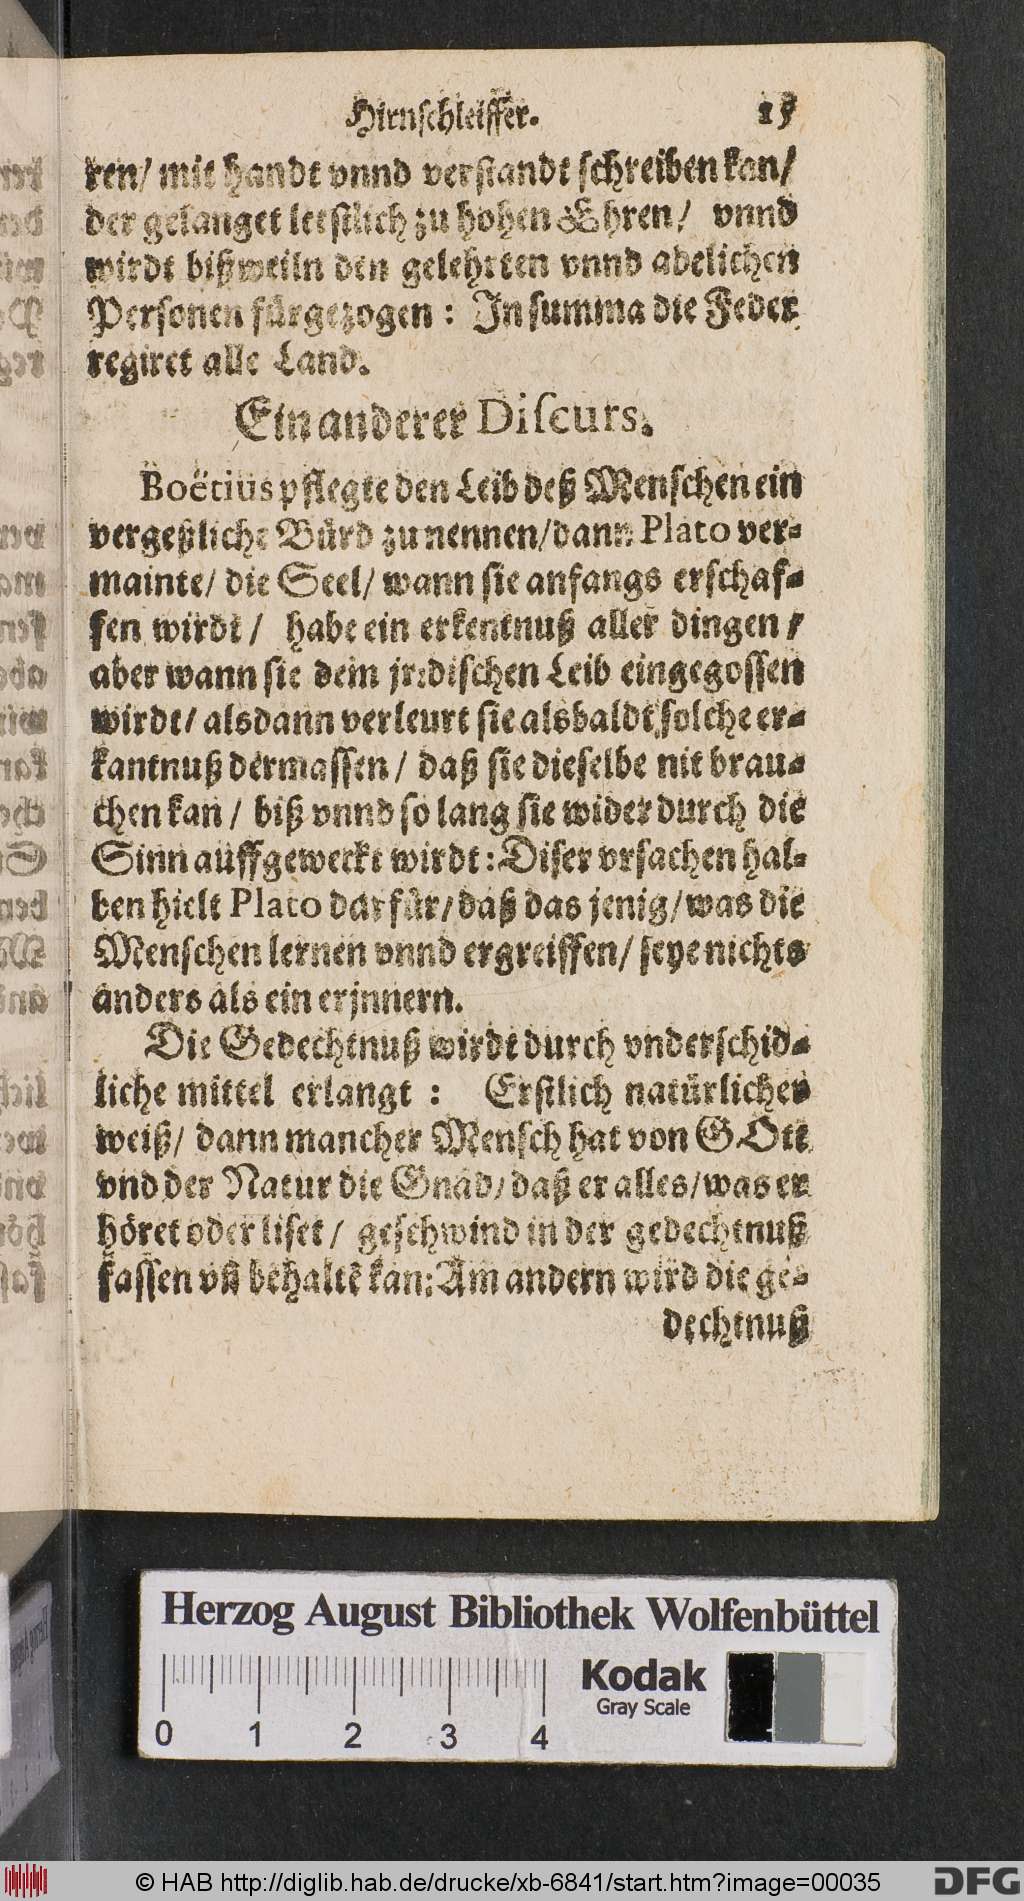 Hirnschleiffer. 15
ren/ mit handt vnnd verstandt schreiben kan/
der gelanget letstlich zu hohen Ehren/ vnnd
wirdt bißweiln den gelehrten vnnd adelichen
Personen fürgezogen: In summa die Feder
regiret alle Land.
Ein anderer Discurs.
Boëtius pflegte den Leib deß Menschen ein
vergeßliche Bürd zu nennen/ dann Plato ver-
mainte/ die Seel/ wann sie anfangs erschaf-
fen wirdt/ habe ein erkentnuß aller dingen/
aber wann sie dem jrrdischen Leib eingegossen
wirdt/ alsdann verleurt sie alsbaldt solche er-
kantnuß dermassen/ daß sie dieselbe nit brau-
chen kan/ biß vnnd so lang sie wider durch die
Sinn auffgeweckt wirdt: Diser vrsachen hal-
ben hielt Plato darfür/ daß das jenig/ was die
Menschen lernen vnnd ergreiffen/ seye nichts
anders als ein erjnnern.
Die Gedechtnuß wirdt durch vnderschid-
liche mittel erlangt: Erstlich natürlicher
weiß/ dann mancher Mensch hat von GOtt
vnd der Natur die Gnad/ daß er alles/ was er
höret oder liset/ geschwind in der gedechtnuß
fassen vñ behaltē kan: Am andern wird die ge-
dechtnuß
Herzog August Bibliothek Wolfenbüttel
Kodak
Gray Scale
0 1 2 3 4
© HAB http://diglib.hab.de/drucke/xb-6841/start.htm?image=00035
DFG